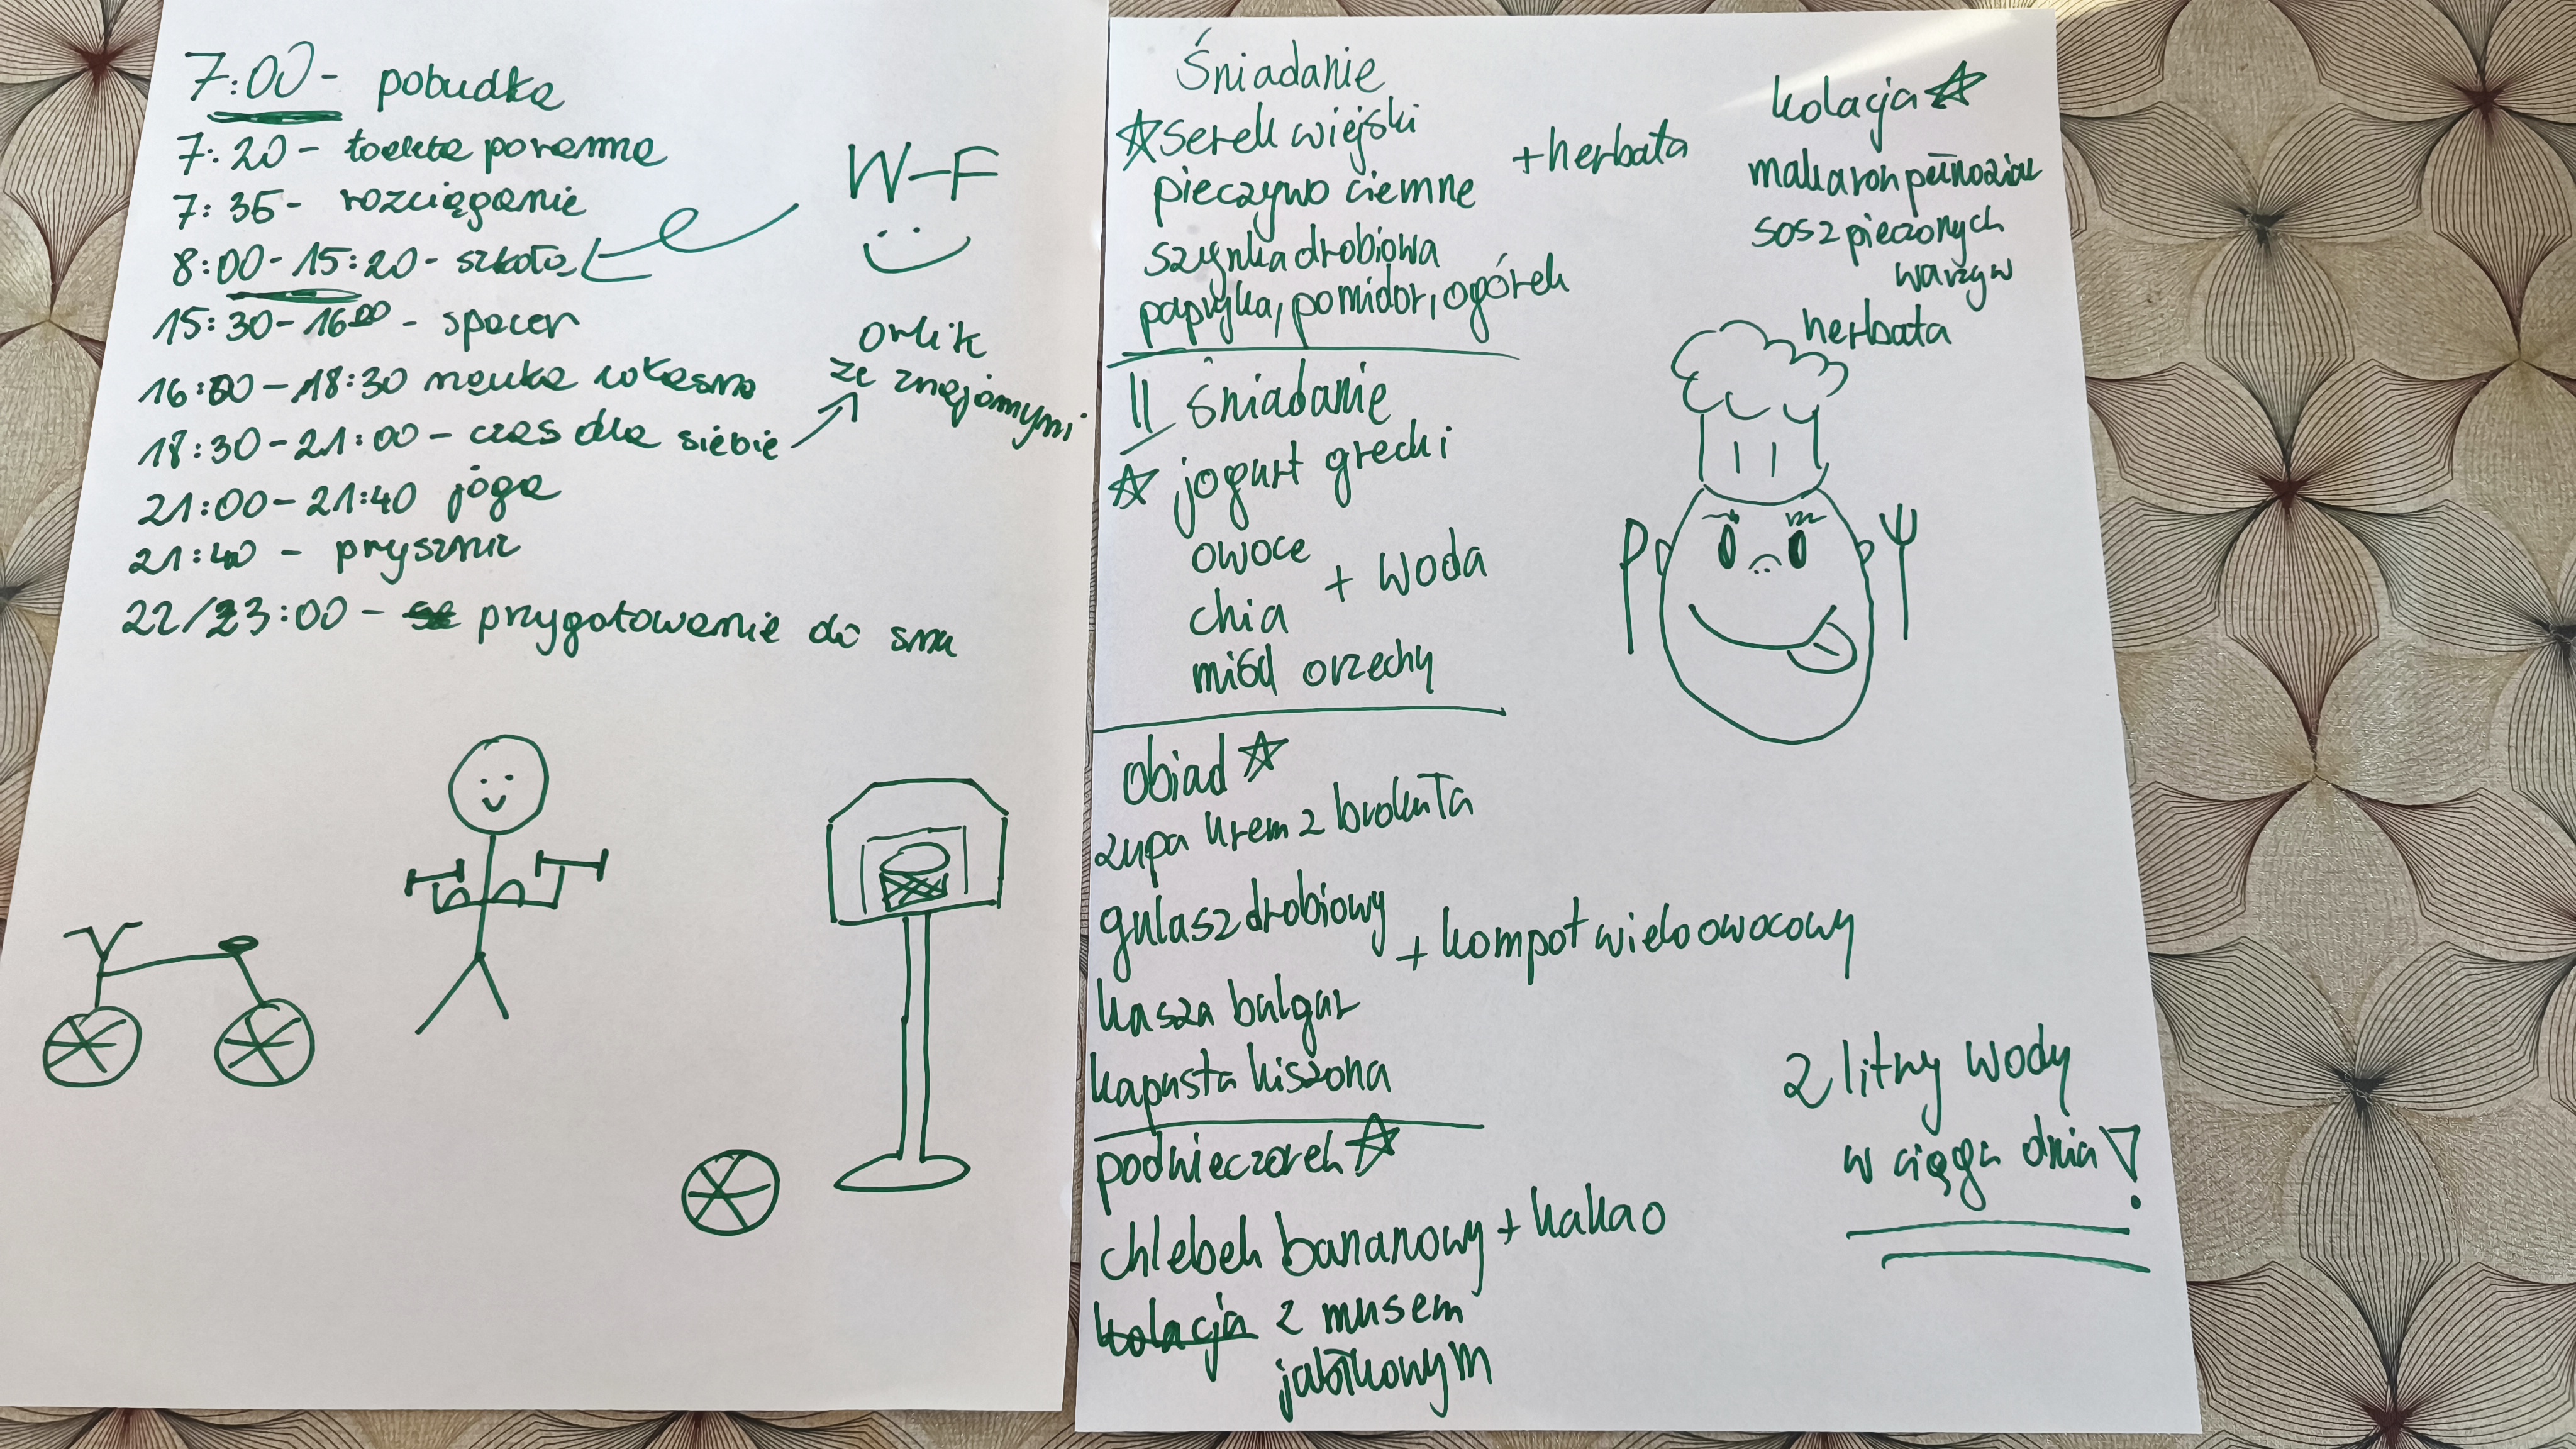 7:00 - pobudka
7:20 - toaleta poranna
7:35 - rozciąganie
8:00 - 15:20 - szkoła
15:30 - 16:00 - spacer
16:00 - 18:30 nauka własna
18:30 - 21:00 - czas dla siebie
21:00 - 21:40 joga
21:40 - prysznic
22/23:00 - przygotowanie do snu
W-F
orlik
ze znajomymi
Śniadanie
serek wiejski
pieczywo ciemne
szynka drobiowa
papryka, pomidor, ogórek
+ herbata
II śniadanie
jogurt grecki
owoce
chia
miód orzechy
+ woda
obiad
zupa krem z brokuła
gulasz drobiowy
+ kompot wieloowocowy
kasza bulgur
kapusta kiszona
podwieczorek
chlebek bananowy + kakao
kolacja z musem
jabłkowym
kolacja
makaron pełnoziar
sos z pieczonych
warzyw
herbata
2 litry wody
w ciągu dnia!